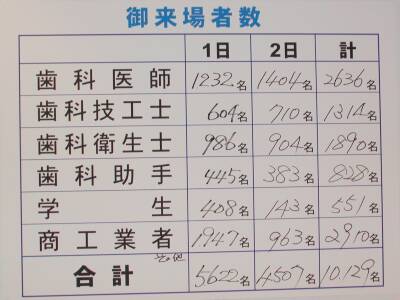 御来場者数
1日 2日 計
歯科医師 1232名 1404名 2636名
歯科技工士 604名 710名 1314名
歯科衛生士 986名 904名 1890名
歯科助手 445名 383名 828名
学生 408名 143名 551名
商工業者 その他 1947名 963名 2910名
合計 5622名 4507名 10.129名